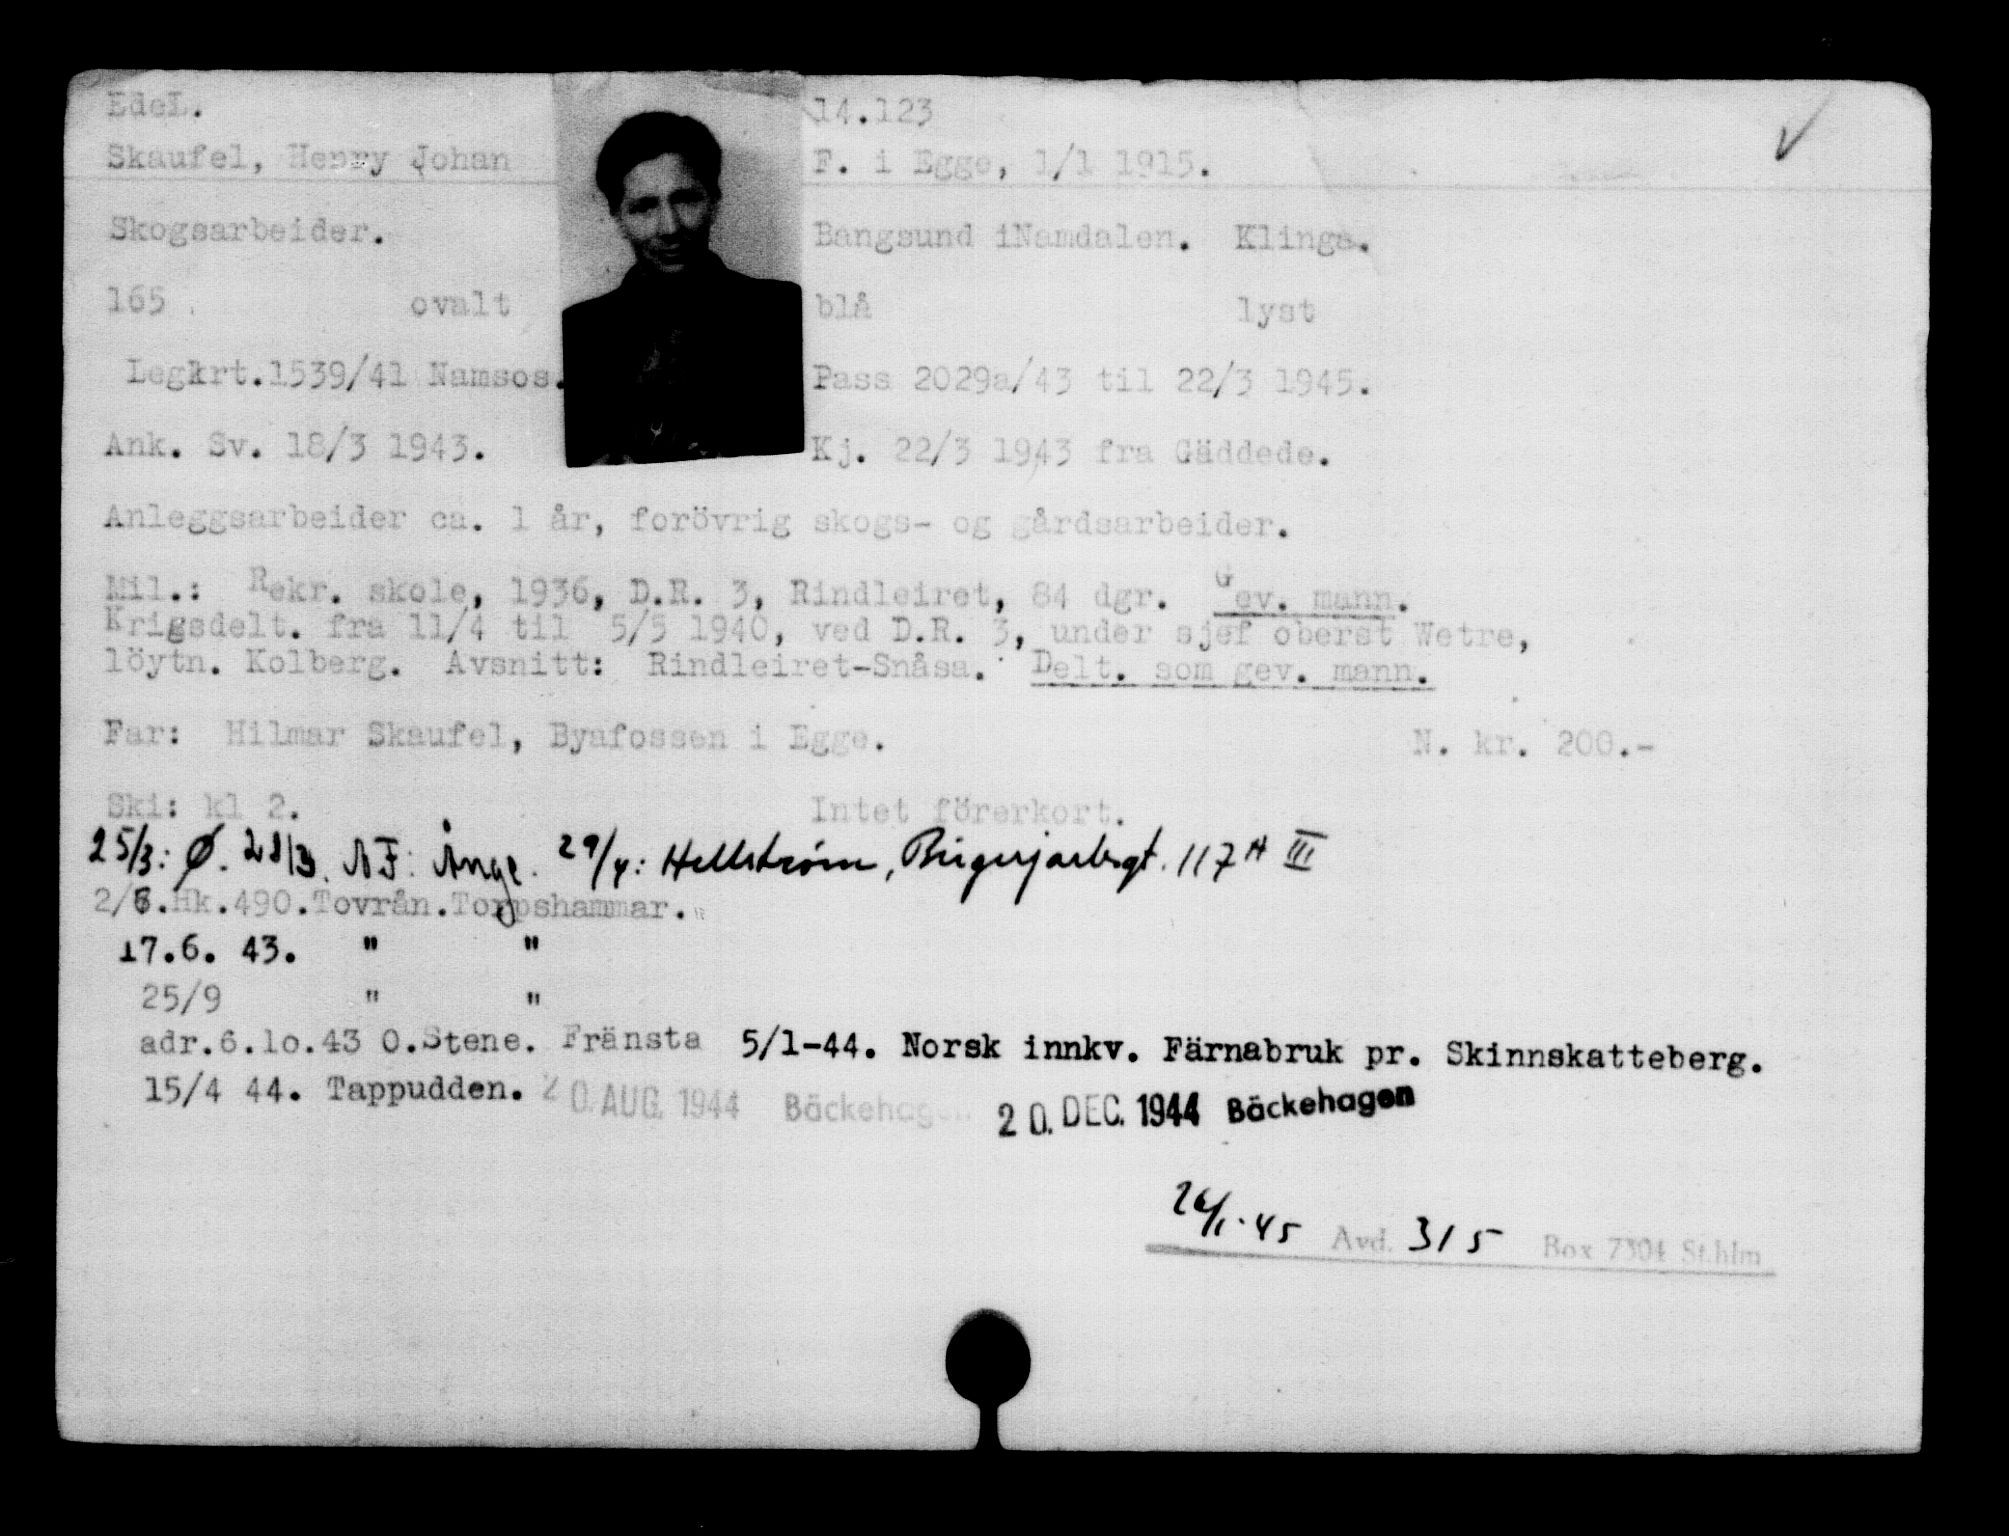 EdeL. 14.123
Skaufel, Henry Johan F. i Egge, 1/1 1915.
Skogsarbeider. Bangsund iNamdalen. Klinga.
165 ovalt blå lyst
Legkrt.1539/41 Namsos. Pass 2029a/43 til 22/3 1945.
Ank. Sv. 18/3 1943. Kj. 22/3 1943 fra Gäddede.
Anleggsarbeider ca. 1 år, forövrig skogs- og gårdsarbeider.
Mil.: Rekr. skole, 1936, D.R. 3, Rindleiret, 84 dgr. Gev. mann.
Krigsdelt. fra 11/4 til 5/5 1940, ved D.R. 3, under sjef oberst Wetre,
löytn. Kolberg. Avsnitt: Rindleiret-Snåsa. Delt. som gev. mann.
Far: Hilmar Skaufel, Byafossen i Egge. N. kr. 200.-
Ski: kl 2. Intet förerkort.
25/3: Ø. 28/3. NF: Ånge. 29/4: Hellström, Birgerjarlsgt. 117 A III
2/6.Hk.490.Tovrån.Torpshammar.
17.6. 43. " "
25/9 " "
adr.6.lo.43 O.Stene. Fränsta 5/1-44. Norsk innkv. Färnabruk pr. Skinnskatteberg.
15/4 44. Tappudden. 20. AUG. 1944 Bäckehagen 20. DEC. 1944 Bäckehagen
26/1.45 Avd. 315 Box 7304 St.hlm